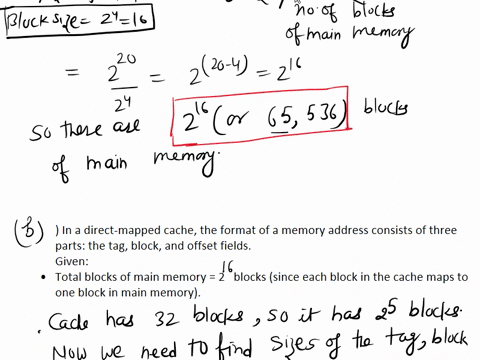 Block size = 2⁴ = 16
no. of blocks
of main memory
= 2²⁰ / 2⁴ = 2⁽²⁰⁻⁴⁾ = 2¹⁶
So there are 2¹⁶ (or 65,536) blocks
of main memory.
(b) ) In a direct-mapped cache, the format of a memory address consists of three
parts: the tag, block, and offset fields.
Given:
• Total blocks of main memory = 2¹⁶ blocks (since each block in the cache maps to
one block in main memory).
. Cache has 32 blocks, so it has 2⁵ blocks.
Now we need to find sizes of the tag, block